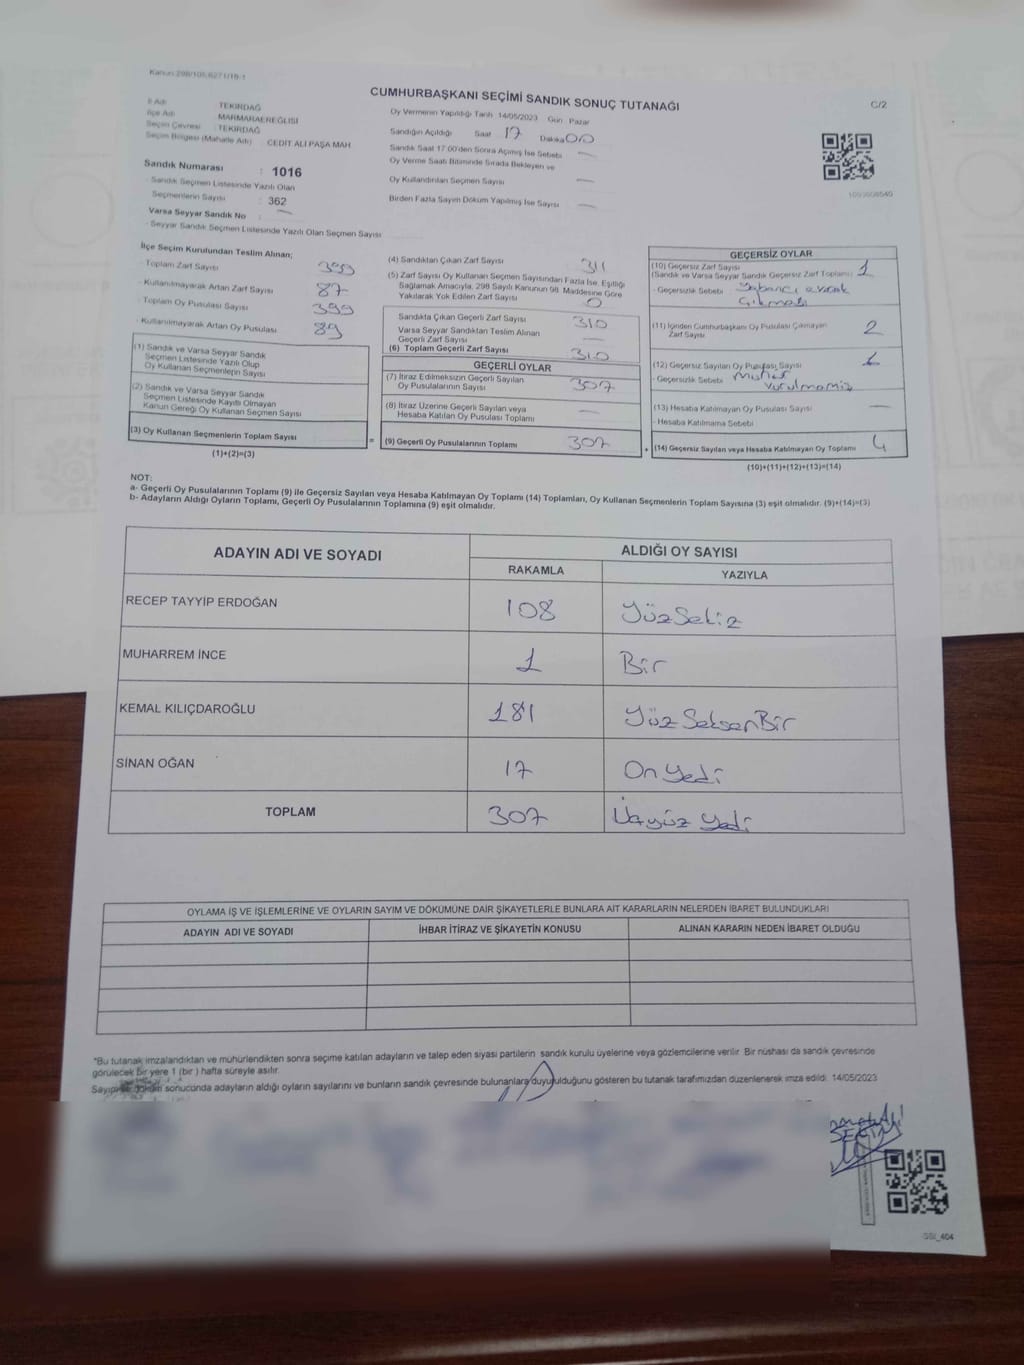 Kanun:298/105,6271/18-1
CUMHURBAŞKANI SEÇİMİ SANDIK SONUÇ TUTANAĞI
C/2
İl Adı : TEKİRDAĞ
İlçe Adı : MARMARAEREĞLİSİ
Seçim Çevresi : TEKİRDAĞ
Seçim Bölgesi (Mahalle Adı) : CEDİT ALİ PAŞA MAH
Sandık Numarası : 1016
- Sandık Seçmen Listesinde Yazılı Olan
Seçmenlerin Sayısı : 362
Varsa Seyyar Sandık No : —
- Seyyar Sandık Seçmen Listesinde Yazılı Olan Seçmen Sayısı
Oy Vermenin Yapıldığı Tarih 14/05/2023 Gün : Pazar
Sandığın Açıldığı Saat 17 Dakika 00
Sandık Saat 17.00'den Sonra Açılmış İse Sebebi —
Oy Verme Saati Bitiminde Sırada Bekleyen ve
Oy Kullandırılan Seçmen Sayısı —
Birden Fazla Sayım Döküm Yapılmış İse Sayısı —
İlçe Seçim Kurulundan Teslim Alınan;
- Toplam Zarf Sayısı 399
- Kullanılmayarak Artan Zarf Sayısı 87
- Toplam Oy Pusulası Sayısı 399
- Kullanılmayarak Artan Oy Pusulası 89
(1) Sandık ve Varsa Seyyar Sandık
Seçmen Listesinde Yazılı Olup
Oy Kullanan Seçmenlerin Sayısı
(2) Sandık ve Varsa Seyyar Sandık
Seçmen Listesinde Kayıtlı Olmayan
Kanun Gereği Oy Kullanan Seçmen Sayısı
(3) Oy Kullanan Seçmenlerin Toplam Sayısı
(1)+(2)=(3)
(4) Sandıktan Çıkan Zarf Sayısı 311
(5) Zarf Sayısı Oy Kullanan Seçmen Sayısından Fazla İse, Eşitliği
Sağlamak Amacıyla, 298 Sayılı Kanunun 98. Maddesine Göre
Yakılarak Yok Edilen Zarf Sayısı 0
Sandıkta Çıkan Geçerli Zarf Sayısı 310
Varsa Seyyar Sandıktan Teslim Alınan
Geçerli Zarf Sayısı —
(6) Toplam Geçerli Zarf Sayısı 310
GEÇERLİ OYLAR
(7) İtiraz Edilmeksizin Geçerli Sayılan
Oy Pusulalarının Sayısı 307
(8) İtiraz Üzerine Geçerli Sayılan veya
Hesaba Katılan Oy Pusulası Toplamı —
= (9) Geçerli Oy Pusulalarının Toplamı 307
GEÇERSİZ OYLAR
(10) Geçersiz Zarf Sayısı 1
(Sandık ve Varsa Seyyar Sandık Geçersiz Zarf Toplamı)
- Geçersizlik Sebebi Yabancı evrak
Çıkması
(11) İçinden Cumhurbaşkanı Oy Pusulası Çıkmayan
Zarf Sayısı 2
(12) Geçersiz Sayılan Oy Pusulası Sayısı 1
- Geçersizlik Sebebi Mühür
Vurulmamış
(13) Hesaba Katılmayan Oy Pusulası Sayısı —
- Hesaba Katılmama Sebebi
+ (14) Geçersiz Sayılan veya Hesaba Katılmayan Oy Toplamı 4
(10)+(11)+(12)+(13)=(14)
NOT:
a- Geçerli Oy Pusulalarının Toplamı (9) ile Geçersiz Sayılan veya Hesaba Katılmayan Oy Toplamı (14) Toplamları, Oy Kullanan Seçmenlerin Toplam Sayısına (3) eşit olmalıdır. (9)+(14)=(3)
b- Adayların Aldığı Oyların Toplamı, Geçerli Oy Pusulalarının Toplamına (9) eşit olmalıdır.
ADAYIN ADI VE SOYADI
ALDIĞI OY SAYISI
RAKAMLA YAZIYLA
RECEP TAYYİP ERDOĞAN 108 YüzSekiz
MUHARREM İNCE 1 Bir
KEMAL KILIÇDAROĞLU 181 Yüz SeksenBir
SİNAN OĞAN 17 On Yedi
TOPLAM 307 Üçyüz Yedi
OYLAMA İŞ VE İŞLEMLERİNE VE OYLARIN SAYIM VE DÖKÜMÜNE DAİR ŞİKAYETLERLE BUNLARA AİT KARARLARIN NELERDEN İBARET BULUNDUKLARI
ADAYIN ADI VE SOYADI İHBAR İTİRAZ VE ŞİKAYETİN KONUSU ALINAN KARARIN NEDEN İBARET OLDUĞU
*Bu tutanak imzalandıktan ve mühürlendikten sonra seçime katılan adayların ve talep eden siyasi partilerin sandık kurulu üyelerine veya gözlemcilerine verilir. Bir nüshası da sandık çevresinde
görülecek bir yere 1 (bir ) hafta süreyle asılır.
Sayım ve döküm sonucunda adayların aldığı oyların sayılarını ve bunların sandık çevresinde bulunanlara duyurulduğunu gösteren bu tutanak tarafımızdan düzenlenerek imza edildi. 14/05/2023
SBİ_404